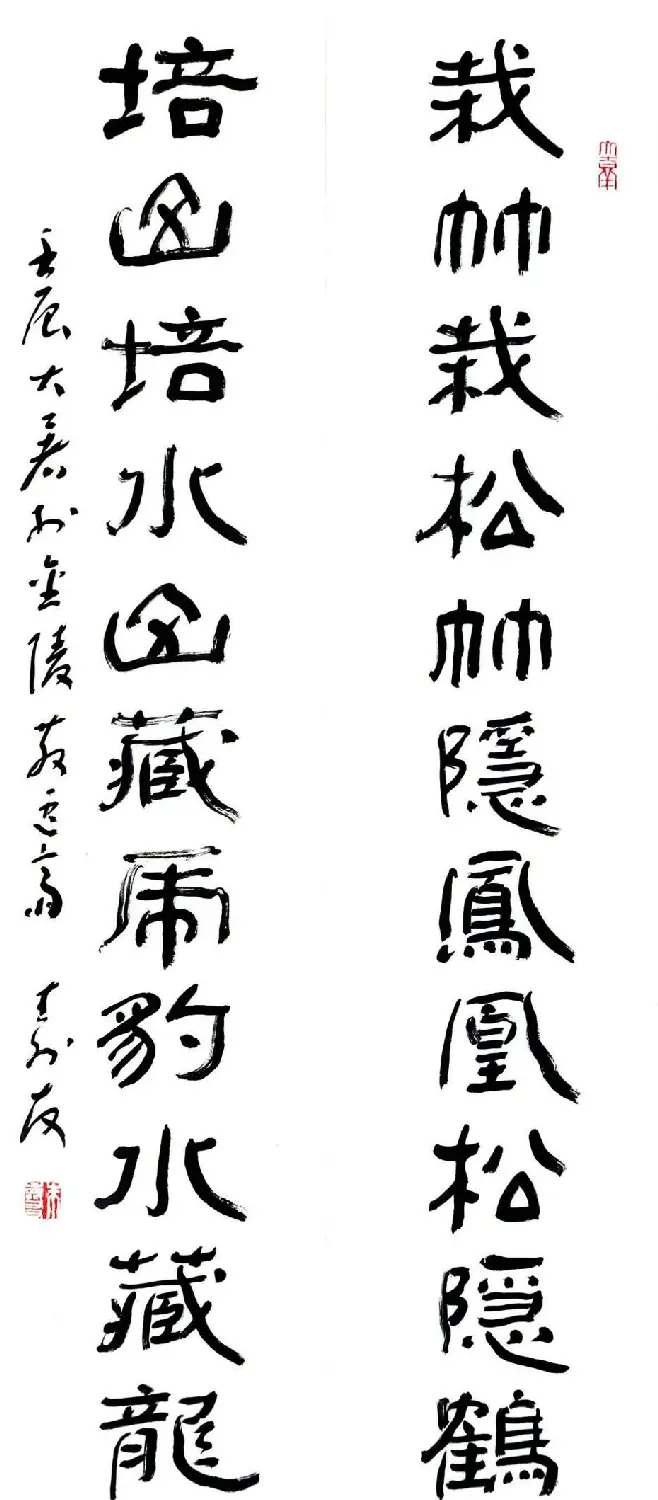 栽竹栽松竹隱鳳凰松隱鶴
培山培水山藏虎豹水藏龍
壬辰大暑於金陵